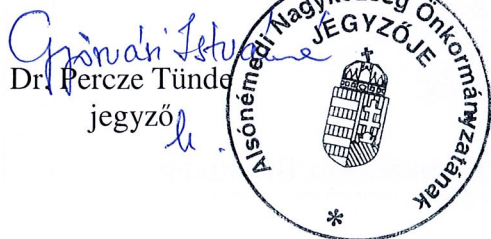 Győrvári Istvánné
Dr. Percze Tünde
jegyző
h.
Alsónémedi Nagyközség Önkormányzatának
JEGYZŐJE
*